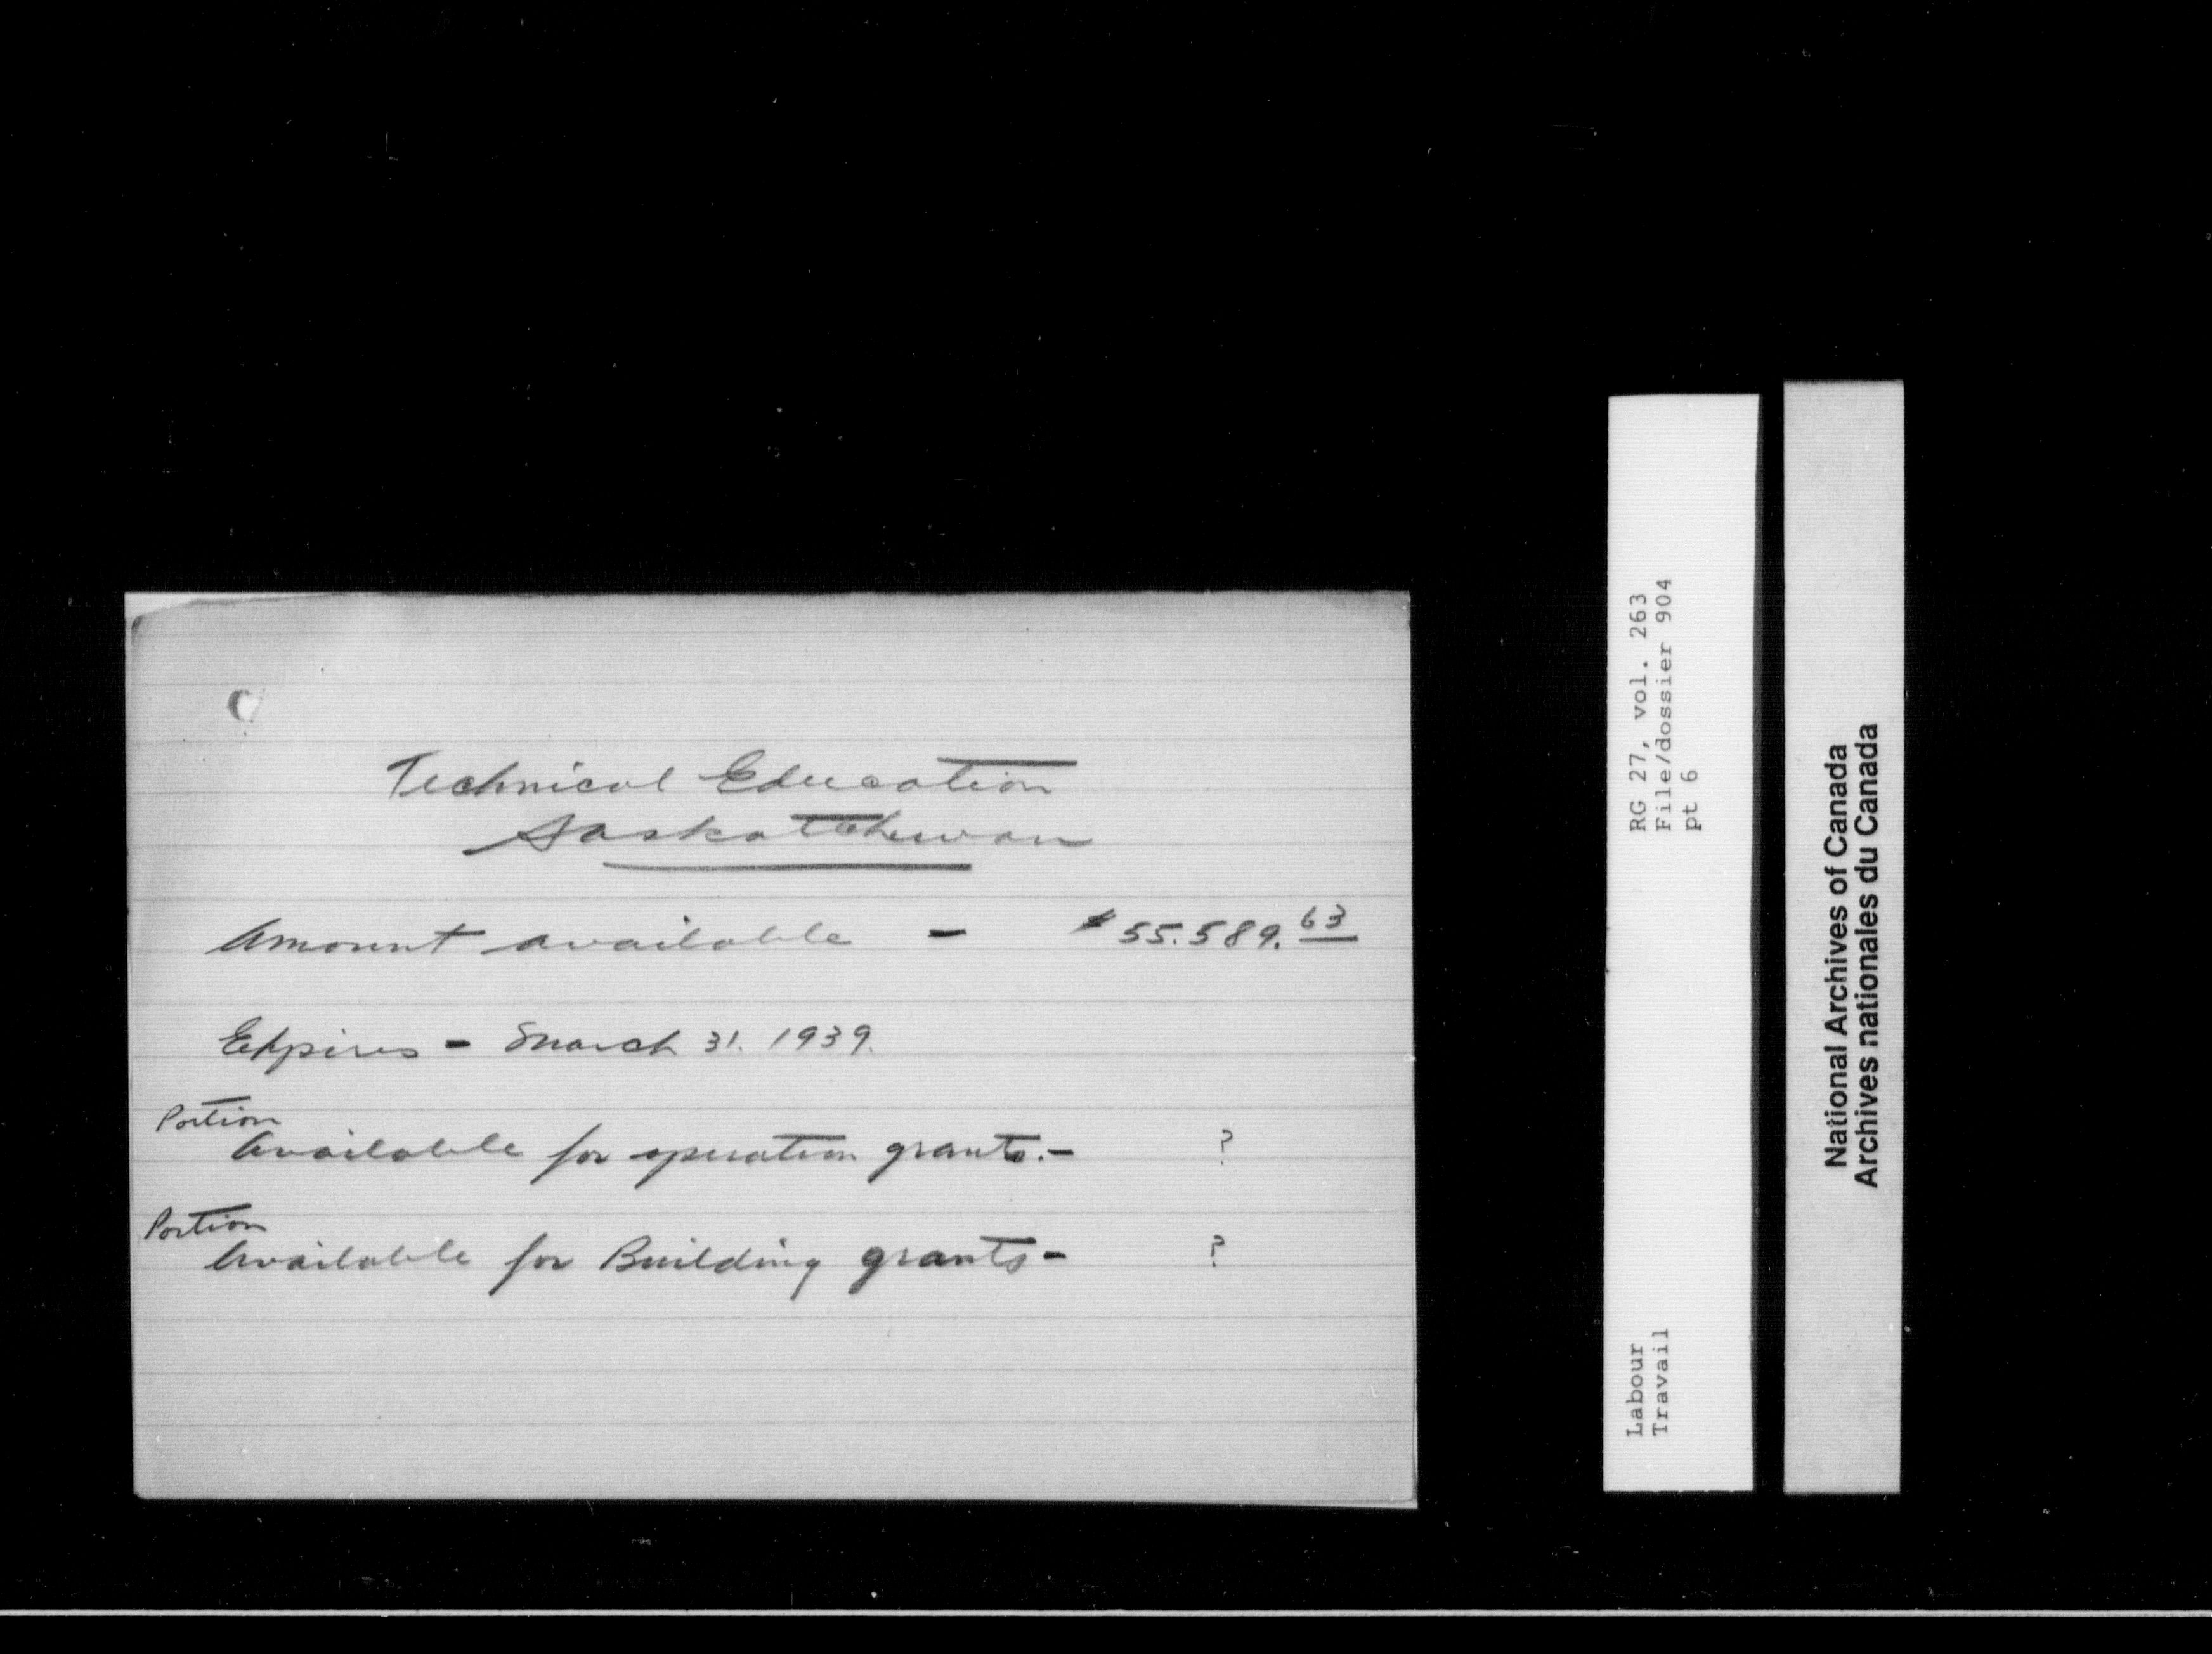 Technical Education
Saskatchewan
Amount available - $55.589.63
Expires - March 31. 1939.
Portion
Available for operation grants.- ?
Portion
Available for Building grants- ?
RG 27, vol. 263
File/dossier 904
pt 6
Labour
Travail
National Archives of Canada
Archives nationales du Canada